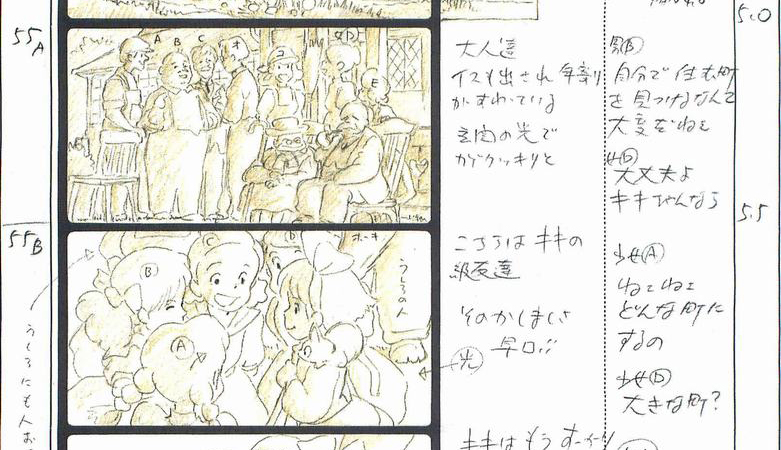 5.0
55A
A B C オ 女D E
大人達
イスも出され 年寄り
がすわっている
玄関の光で
カゲクッキリと
男B
自分で住む町
を見つけるなんて
大変だねぇ
女D
大丈夫よ
キキちゃんなら
5.5
55B
C D ホーキ
B
A
うしろの人
うしろにも人
こちらはキキの
級友達
光
早口
少女A
ねェねェ
どんな町に
するの
少女D
大きな町?
キキはもう